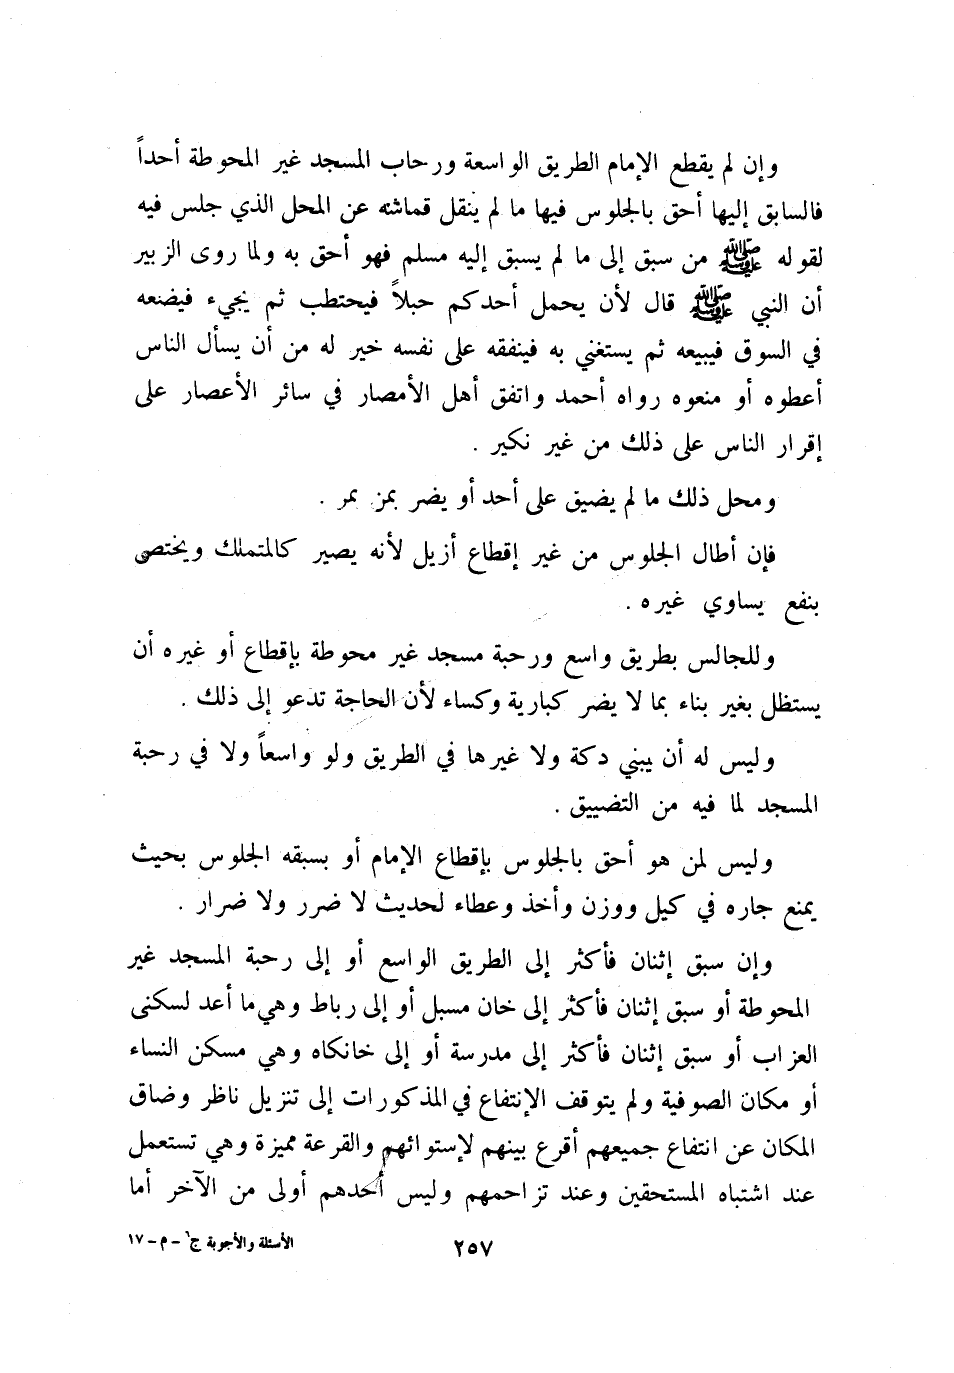 وإن لم يقطع الإمام الطريق الواسعة ورحاب المسجد غير المحوطة أحداً
فالسابق إليها أحق بالجلوس فيها ما لم ينقل قماشه عن المحل الذي جلس فيه
لقوله ﷺ من سبق إلى ما لم يسبق إليه مسلم فهو أحق به ولما روى الزبير
أن النبي ﷺ قال لأن يحمل أحدكم حبلاً فيحتطب ثم يجيء فيضعه
في السوق فيبيعه ثم يستغني به فينفقه على نفسه خير له من أن يسأل الناس
أعطوه أو منعوه رواه أحمد واتفق أهل الأمصار في سائر الأعصار على
إقرار الناس على ذلك من غير نكير .
ومحل ذلك ما لم يضيق على أحد أو يضر بمن يمر .
فإن أطال الجلوس من غير إقطاع أزيل لأنه يصير كالمتملك ويختص
بنفع يساوي غيره .
وللجالس بطريق واسع ورحبة مسجد غير محوطة بإقطاع أو غيره أن
يستظل بغير بناء بما لا يضر كبارية وكساء لأن الحاجة تدعو إلى ذلك .
وليس له أن يبني دكة ولا غيرها في الطريق ولو واسعاً ولا في رحبة
المسجد لما فيه من التضييق .
وليس لمن هو أحق بالجلوس بإقطاع الإمام أو بسبقه الجلوس بحيث
يمنع جاره في كيل ووزن وأخذ وعطاء لحديث لا ضرر ولا ضرار .
وإن سبق إثنان فأكثر إلى الطريق الواسع أو إلى رحبة المسجد غير
المحوطة أو سبق إثنان فأكثر إلى خان مسبل أو إلى رباط وهي ما أعد لسكنى
العزاب أو سبق إثنان فأكثر إلى مدرسة أو إلى خانكاه وهي مسكن النساء
أو مكان الصوفية ولم يتوقف الإنتفاع في المذكورات إلى تنزيل ناظر وضاق
المكان عن انتفاع جميعهم أقرع بينهم لإستوائهم والقرعة مميزة وهي تستعمل
عند اشتباه المستحقين وعند تزاحمهم وليس أحدهم أولى من الآخر أما
٢٥٧
الأسئلة والأجوبة ج٦ - م - ١٧